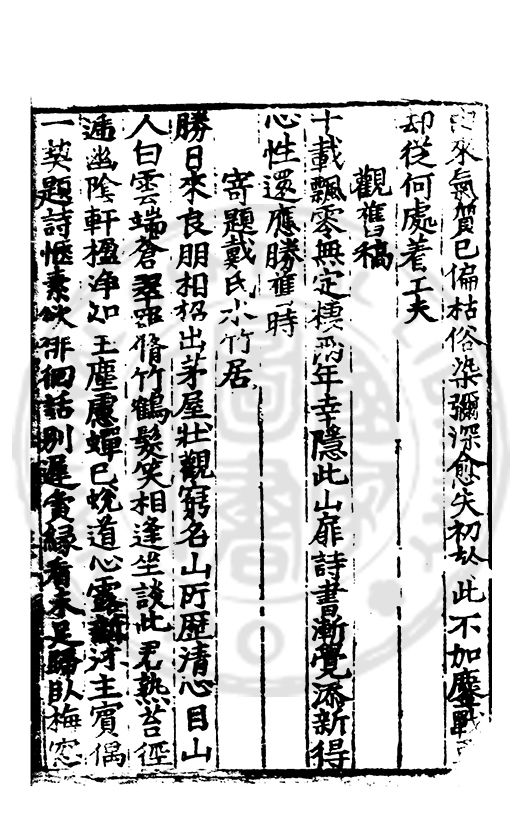 來氣質已偏枯俗染彌深愈失初於此不加鏖戰
却從何處着工夫
觀舊稿
十載飄零無定棲兩年幸隱此山扉詩書漸覺添新得
心性還應勝舊時
寄題戴氏水竹居
勝日來良朋扣招出茅屋壯觀窮名山所歷清心目山
人白雲端蒼翠脩竹鶴髮笑相逢坐談此君熟苔徑
通幽陰軒楹淨如玉塵慮蟬已蛻道心靈主賓偶
一笑題詩愜素欲徘徊話別遲夤緣看未足歸臥梅窓